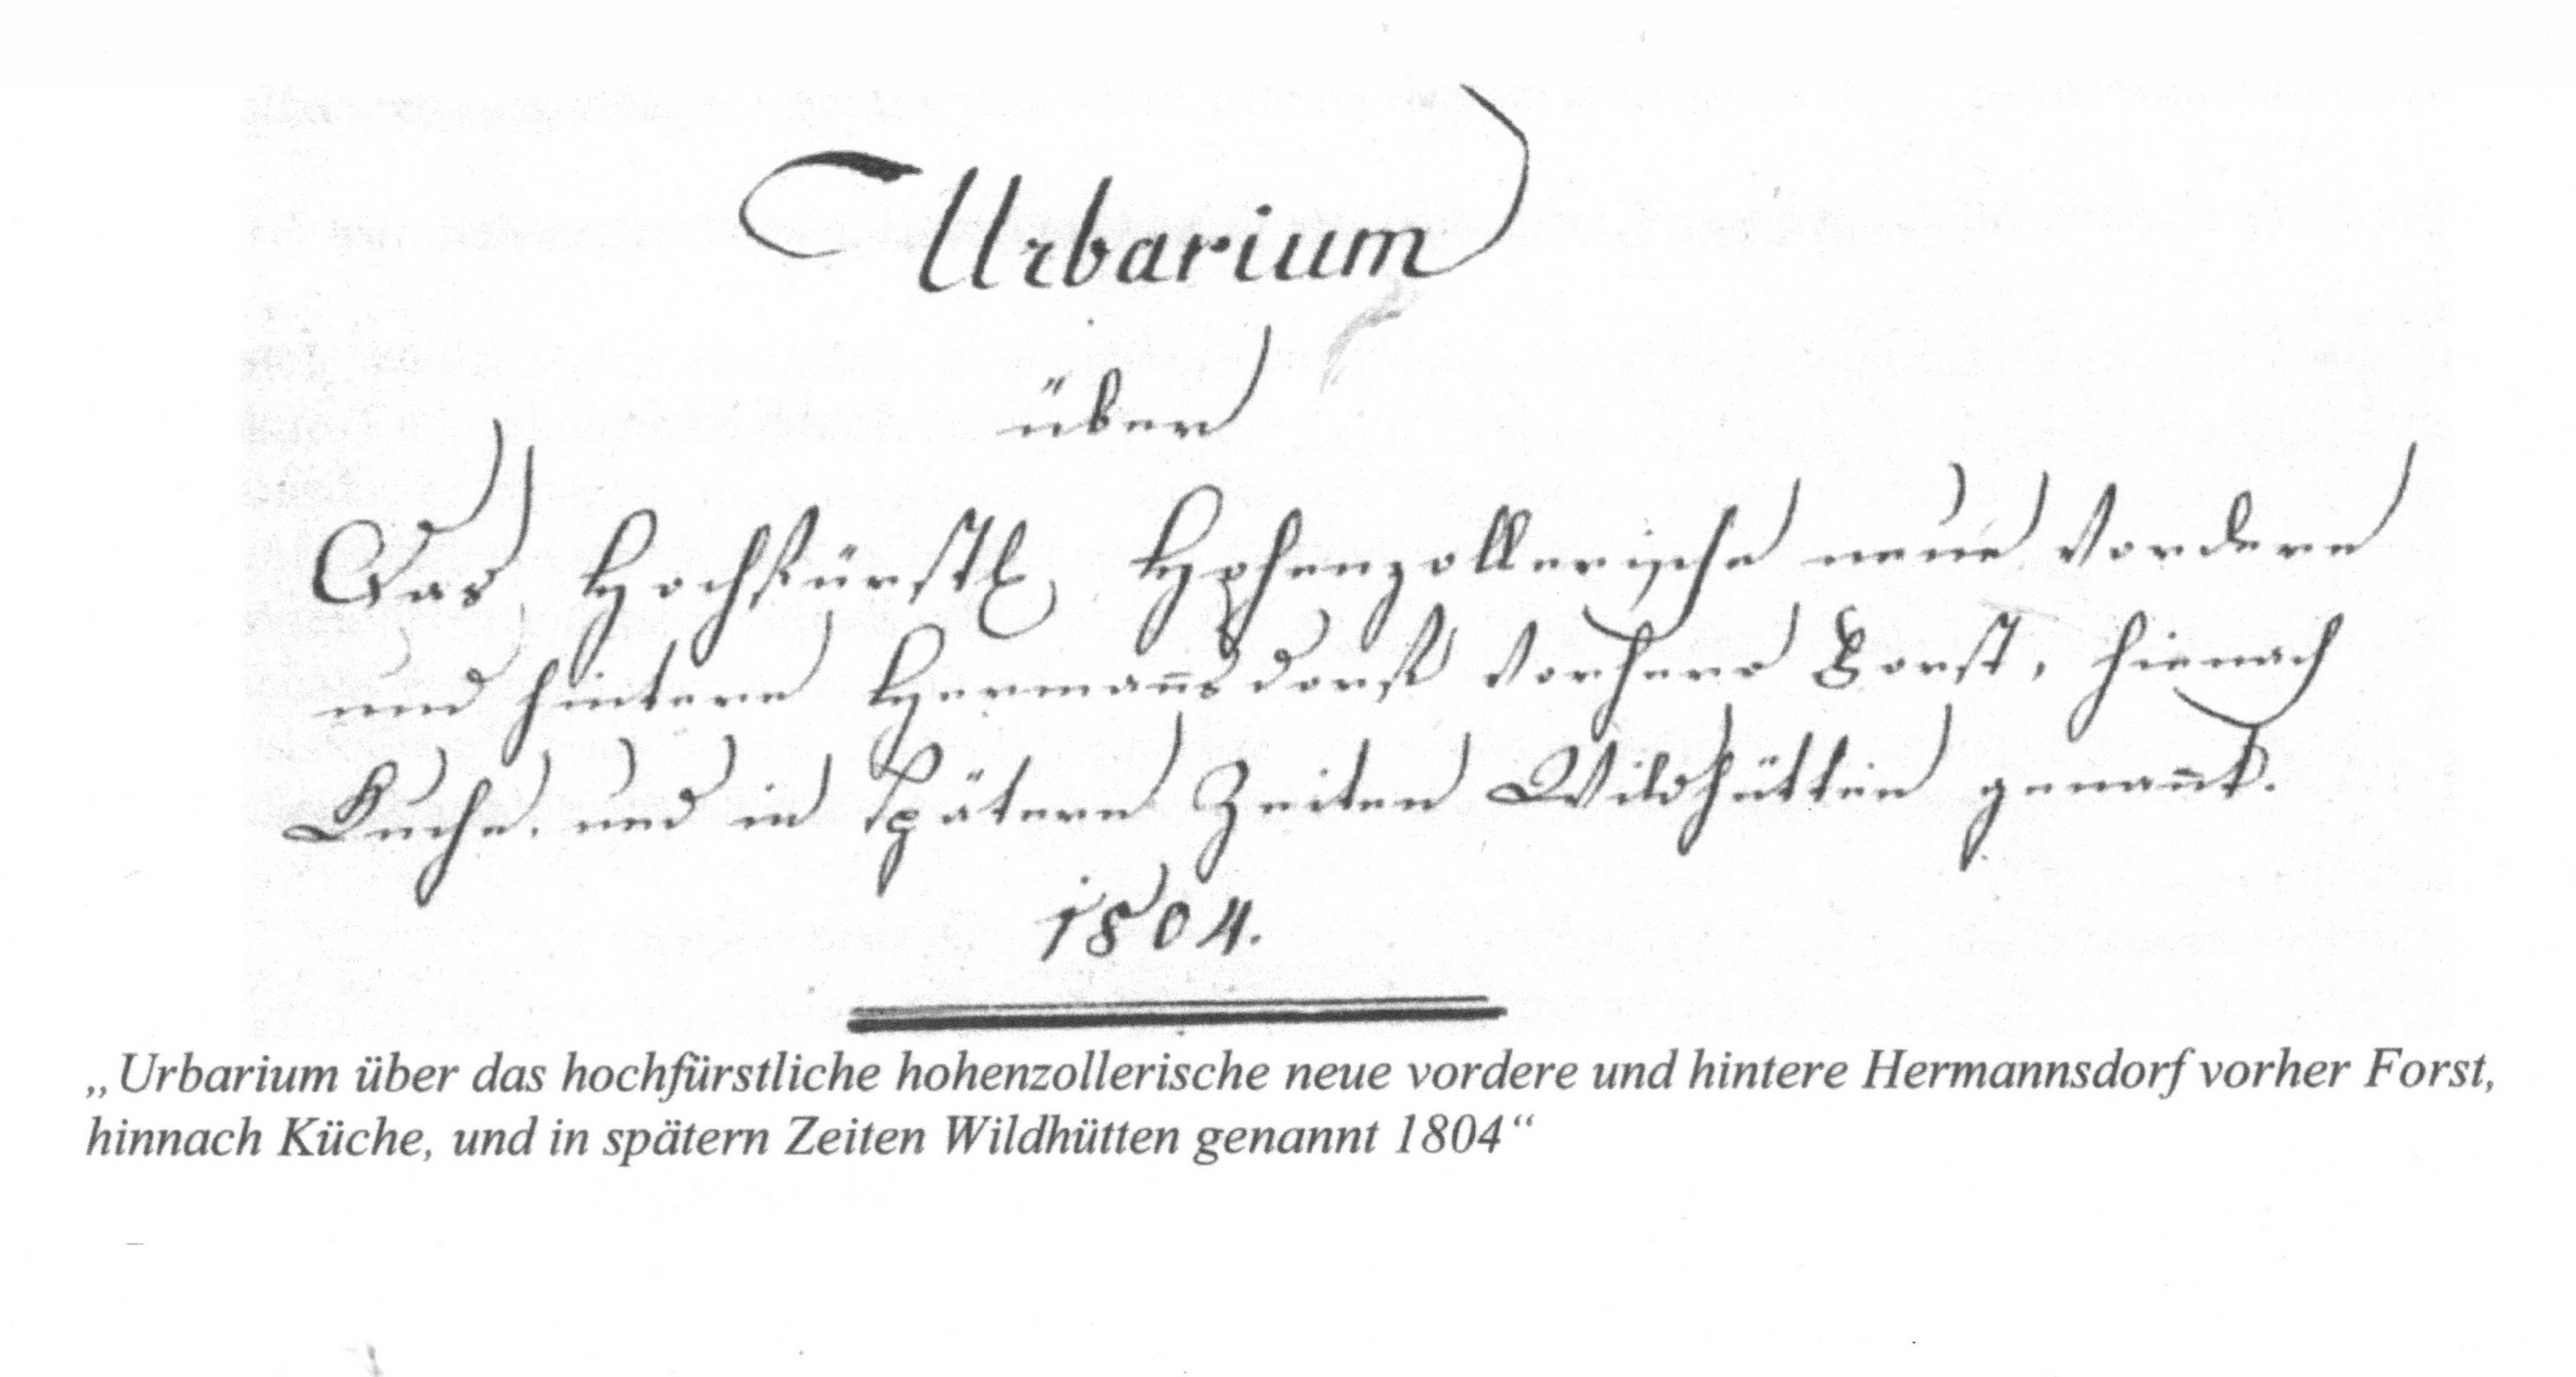 Urbarium
über
Das Hochfürstl. Hohenzollerische neue Vordere
und hintere Hermañsdorf Vorhero Forst, hienach
Kuche, und in Spätern Zeiten Wildhütten genañt.
1804.
„Urbarium über das hochfürstliche hohenzollerische neue vordere und hintere Hermannsdorf vorher Forst,
hinnach Küche, und in spätern Zeiten Wildhütten genannt 1804“